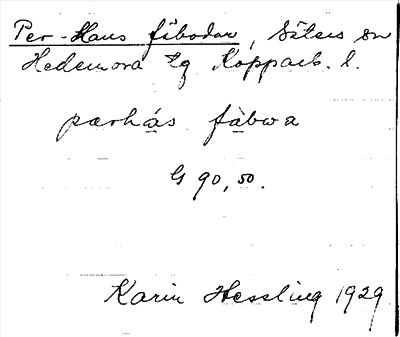 Per-Hans fäbodar, Säters sn
Hedemora tg Kopparb. l.
pærhás fàbwa
G 90, 50.
Karin Hessling 1929